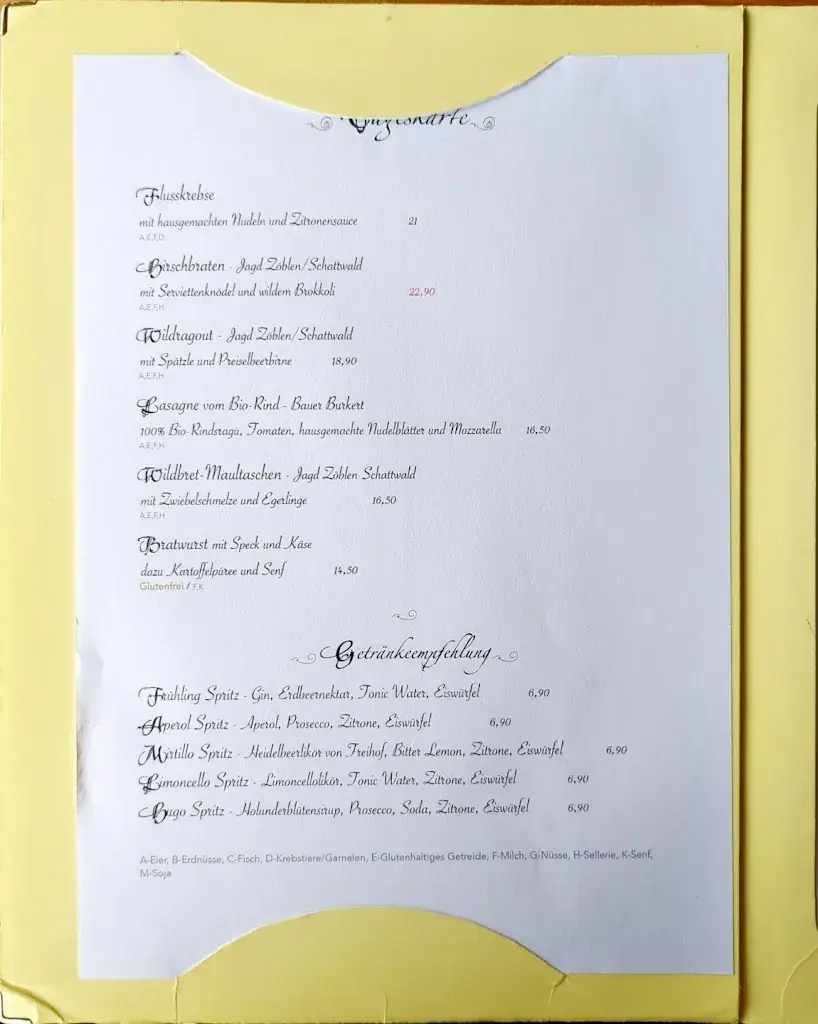 Tageskarte
Flusskrebse
mit hausgemachten Nudeln und Zitronensauce 21
A,E,F,D
Hirschbraten - Jagd Zöblen/Schattwald
mit Serviettenknödel und wildem Brokkoli 22,90
A,E,F,H
Wildragout - Jagd Zöblen/Schattwald
mit Spätzle und Preiselbeerbirne 18,90
A,E,F,H
Lasagne vom Bio-Rind - Bauer Burkert
100% Bio-Rindsragù, Tomaten, hausgemachte Nudelblätter und Mozzarella 16,50
A,E,F,H
Wildbret-Maultaschen - Jagd Zöblen-Schattwald
mit Zwiebelschmelze und Egerlinge 16,50
A,E,F,H
Bratwurst mit Speck und Käse
dazu Kartoffelpüree und Senf 14,50
Glutenfrei / F,K
Getränkeempfehlung
Frühling Spritz - Gin, Erdbeernektar, Tonic Water, Eiswürfel 6,90
Aperol Spritz - Aperol, Prosecco, Zitrone, Eiswürfel 6,90
Mirtillo Spritz - Heidelbeerlikör von Freihof, Bitter Lemon, Zitrone, Eiswürfel 6,90
Limoncello Spritz - Limoncellolikör, Tonic Water, Zitrone, Eiswürfel 6,90
Hugo Spritz - Holunderblütensirup, Prosecco, Soda, Zitrone, Eiswürfel 6,90
A-Eier, B-Erdnüsse, C-Fisch, D-Krebstiere/Garnelen, E-Glutenhaltiges Getreide, F-Milch, G-Nüsse, H-Sellerie, K-Senf,
M-Soja